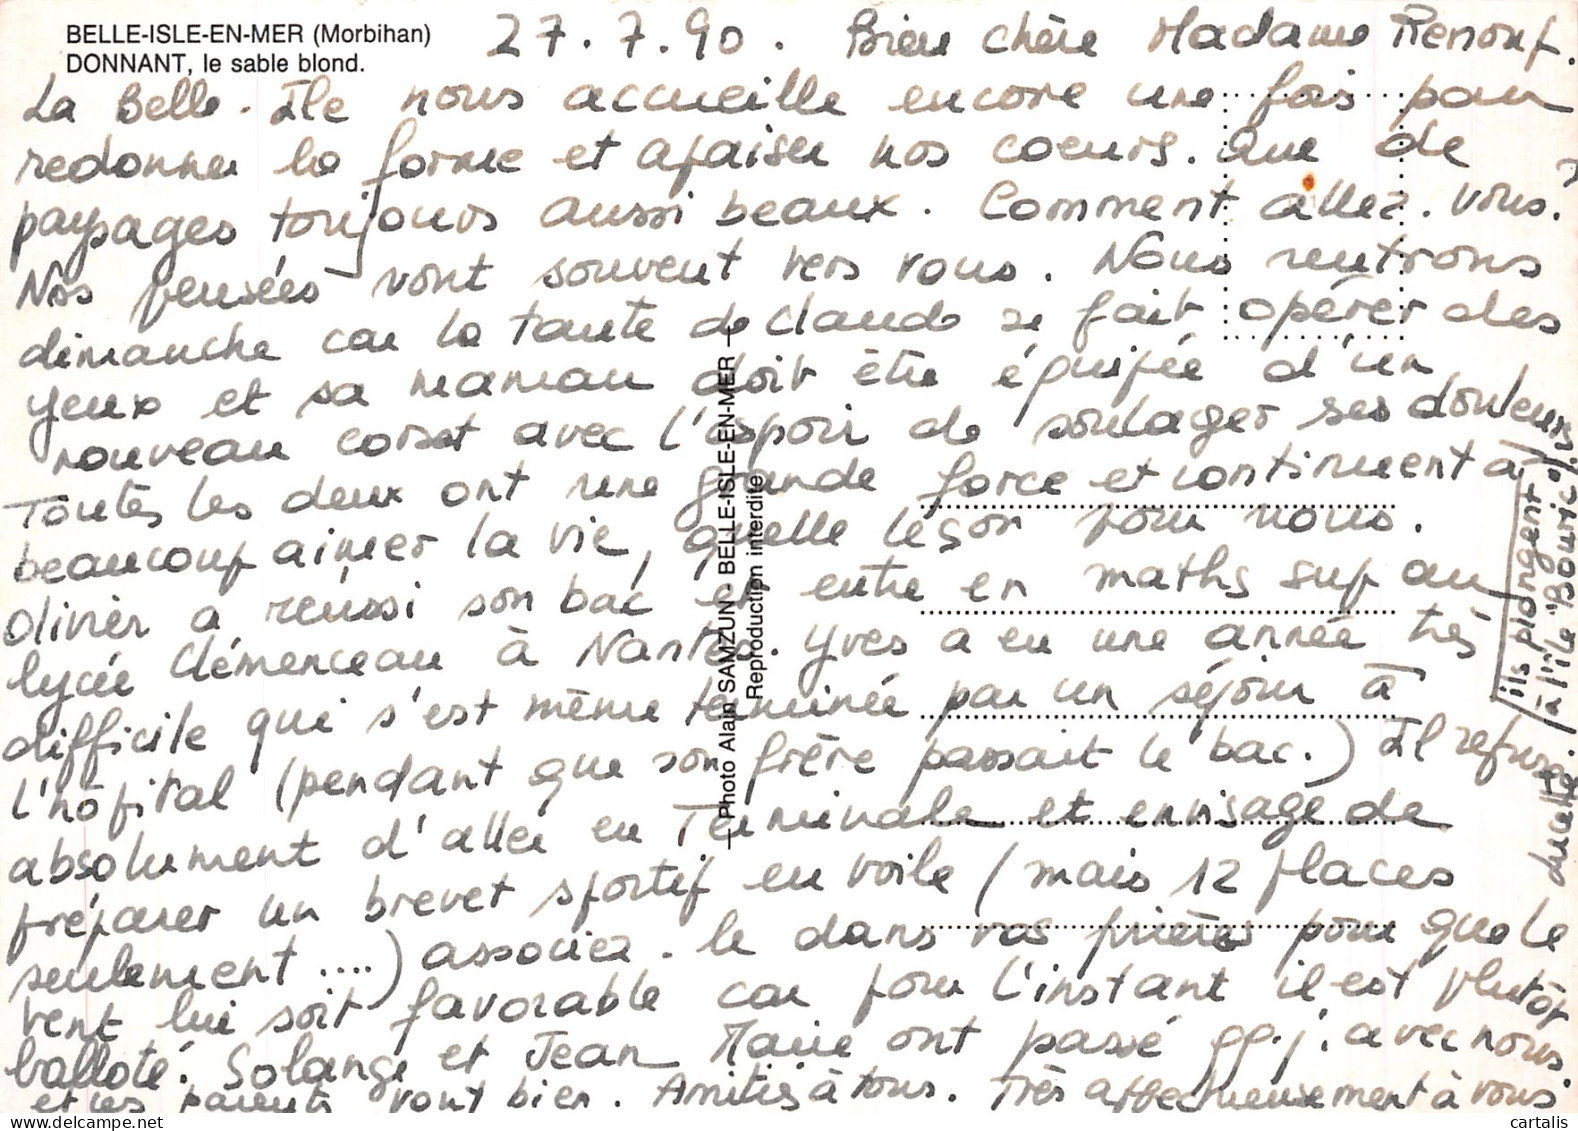 BELLE-ISLE-EN-MER (Morbihan)
DONNANT, le sable blond.
27.7.90. Bien chère Madame Renouf.
La Belle-Ile nous accueille encore une fois pour
redonner la forme et apaiser nos coeurs. Que de
paysages toujours aussi beaux. Comment allez-vous?
Nos pensées vont souvent vers vous. Nous rentrons
dimanche car la tante de Claude se fait opérer des
yeux et sa maman doit être équipée d'un
nouveau corset avec l'espoir de soulager ses douleurs.
Toutes les deux ont une grande force et continuent à
beaucoup aimer la vie, quelle leçon pour nous.
Olivier a réussi son bac et entre en maths sup au
lycée Clémenceau à Nantes. Yves a eu une année très
difficile qui s'est même terminée par un séjour à
l'hôpital (pendant que son frère passait le bac.) Il refuse
absolument d'aller en Terminale et envisage de
préparer un brevet sportif en voile (mais 12 places
seulement ....) associez-le dans vos prières pour que le
vent lui soit favorable car pour l'instant il est plutôt
balloté. Solange et Jean Marie ont passé qq.j. avec nous
et les parents vont bien. Amitiés à tous. Très affectueusement à vous
ils plongent
à l'île "Bouric"
— Photo Alain SAMZUN - BELLE-ISLE-EN-MER —
Reproduction interdite
cartalis